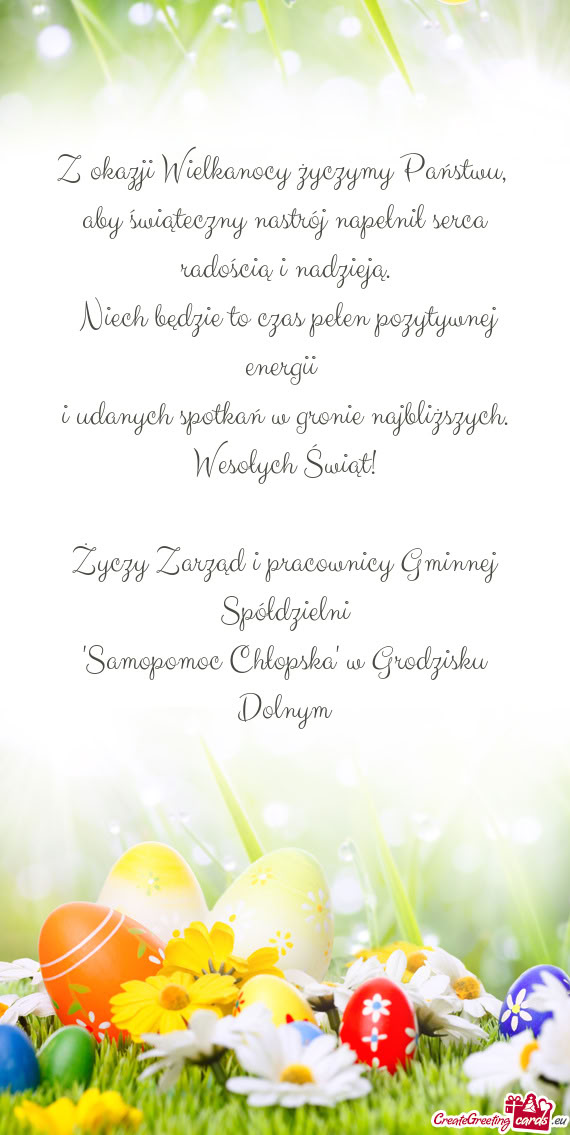 Z okazji Wielkanocy życzymy Państwu,
aby świąteczny nastrój napełnił serca
radością i nadzieją.
Niech będzie to czas pełen pozytywnej
energii
i udanych spotkań w gronie najbliższych.
Wesołych Świąt!
Życzy Zarząd i pracownicy Gminnej
Spółdzielni
'Samopomoc Chłopska' w Grodzisku
Dolnym
CreateGreetingcards.eu